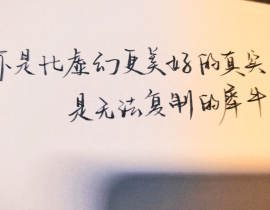 不是比虚幻更美好的真实
是无法复制的犀牛